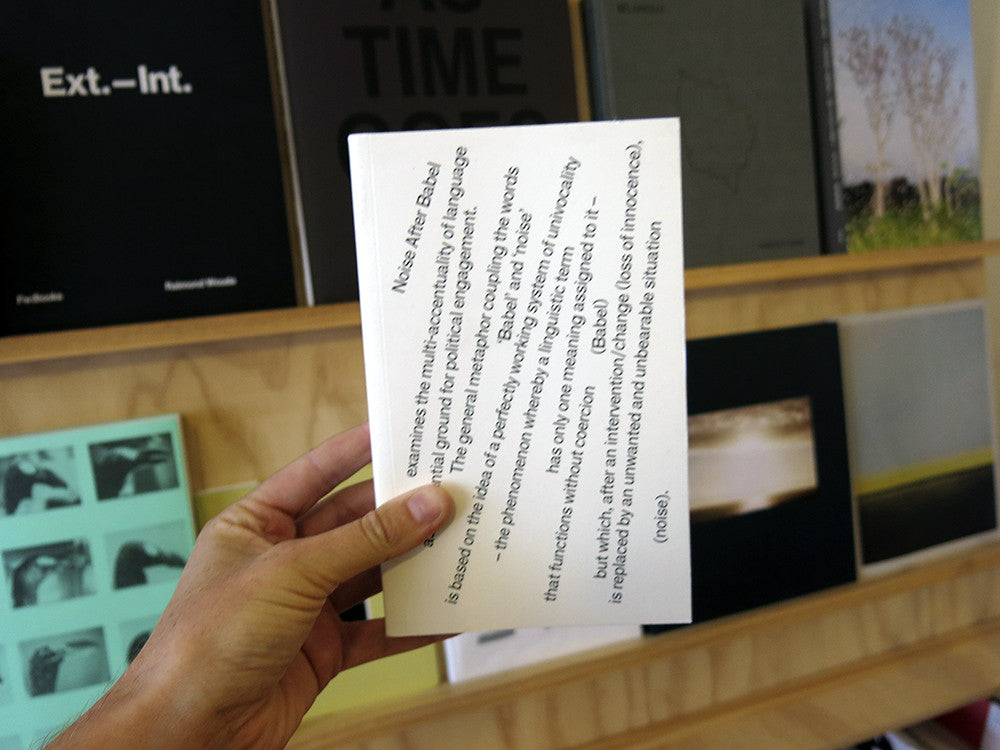 Ext.–Int.
Fw:Books
Raimond Wouda
AS
TIME
GOES
Noise After Babel
examines the multi-accentuality of language
ntial ground for political engagement.
The general metaphor coupling the words
'Babel' and 'noise'
is based on the idea of a perfectly working system of univocality
– the phenomenon whereby a linguistic term
has only one meaning assigned to it –
that functions without coercion
(Babel)
but which, after an intervention/change (loss of innocence),
is replaced by an unwanted and unbearable situation
(noise).